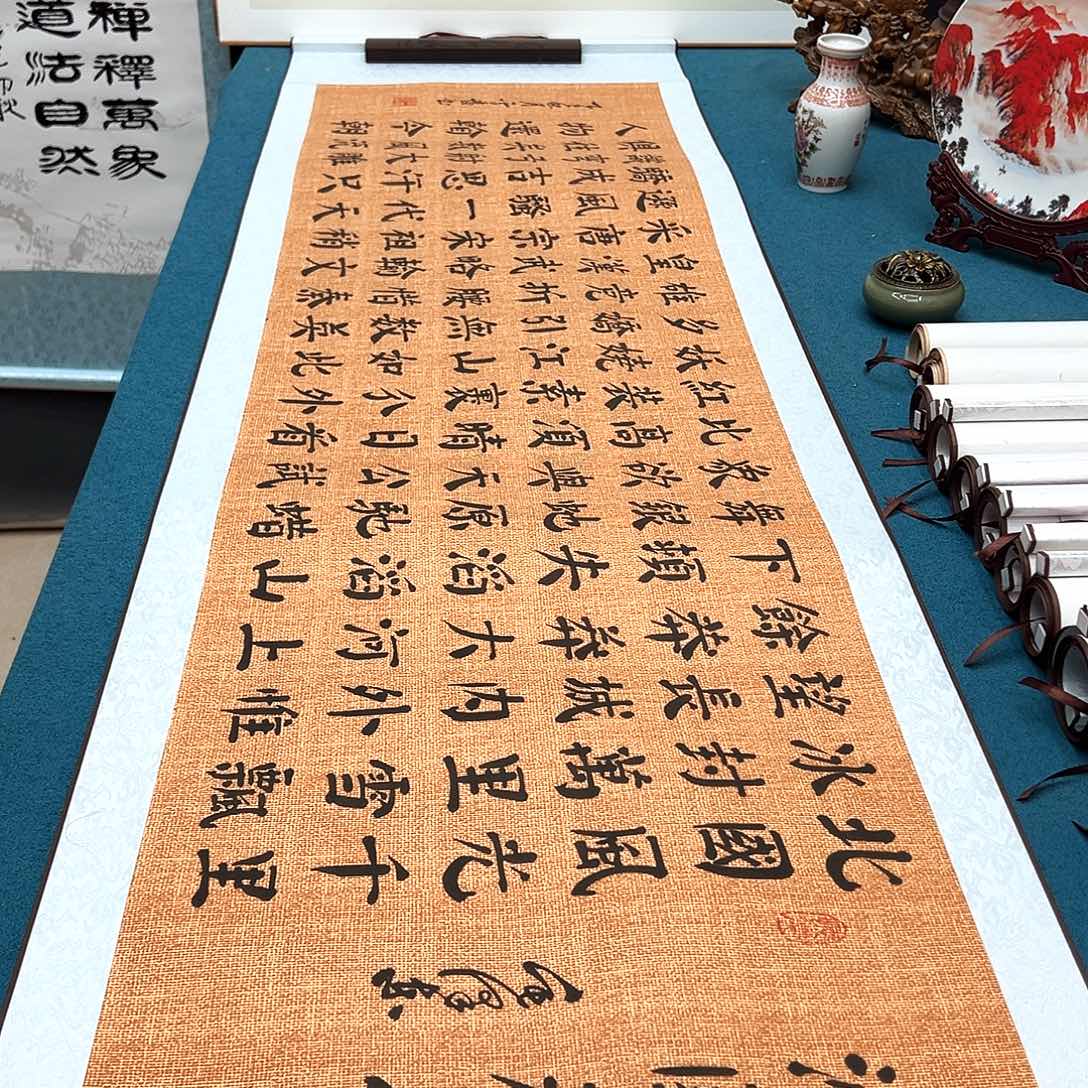 禪釋萬象
道法自然
北國風光千里
冰封萬里雪飄
望長城內外惟
餘莽莽大河上
下頓失滔滔山
舞銀蛇原馳蜡
象欲與天公試
比高須晴日看
紅裝素裹分外
妖嬈江山如此
多嬌引無數英
雄競折腰惜秦
皇漢武略輸文
采唐宗宋祖稍
遜風騷一代天
驕成吉思汗只
識彎弓射大雕
俱往矣數風流
人物還看今朝